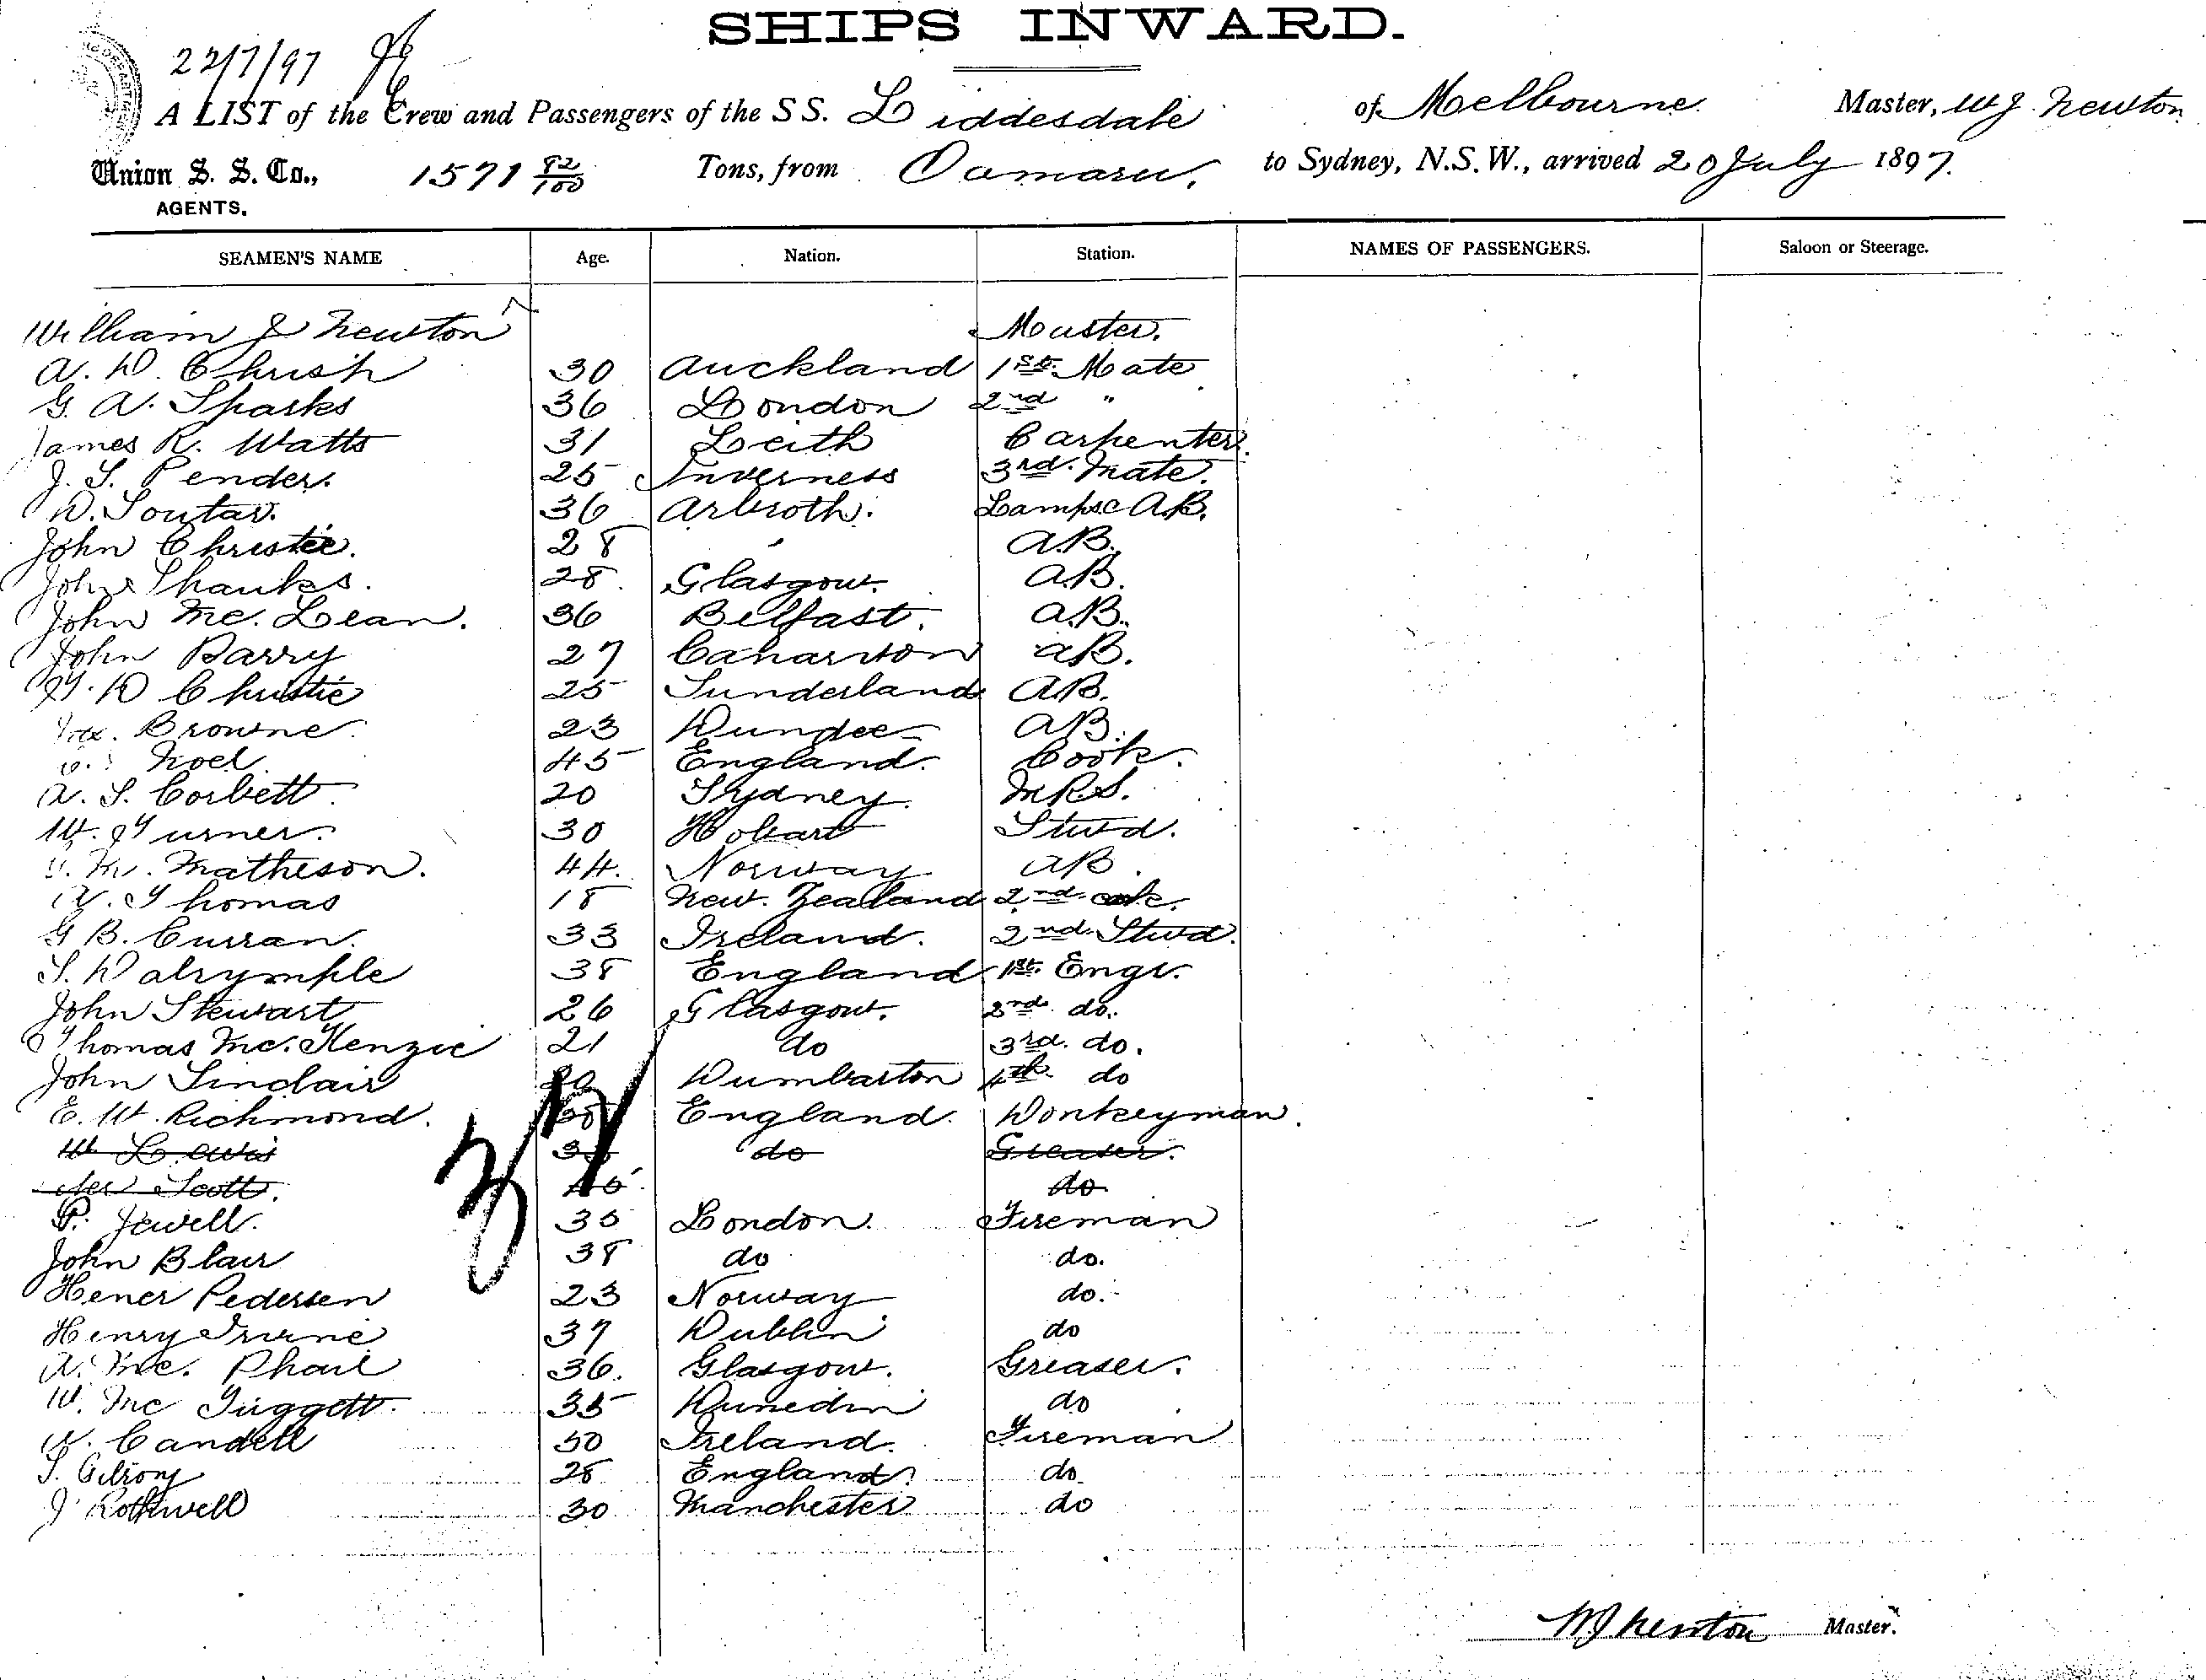 SHIPS INWARD.
22/7/97
A LIST of the Crew and Passengers of the SS. Liddesdale of Melbourne Master, W J. Newton
Union S. S. Co., 1571 82/100 Tons, from Oamaru. to Sydney, N.S.W., arrived 20 July 1897.
AGENTS.
SEAMEN'S NAME Age. Nation. Station. NAMES OF PASSENGERS. Saloon or Steerage.
William J Newton Master.
A. D. 30 Auckland 1st. Mate
G. A. Sparks 36 London 2nd "
James R. Watts 31 Leith Carpenter
J. S. Pender. 25 Inverness 3rd. Mate.
D. Soutar. 36 Arbroth. A.B.
John Christie. 28 " A.B.
John Shanks. 28 Glasgow. A.B.
John Mc. Lean. 36 Belfast. A.B.
John Barry 27 A.B.
D Christie 25 Sunderland A.B.
Browne 23 Dundee A.B.
Noel 45 England. Cook.
A. S. Corbett 20 Sydney. M.R.S.
W. Turner. 30 Hobart Stwd.
Matheson. 44. Norway AB.
Thomas 18 New. Zealand 2nd.
G B. Curran. 33 Ireland. 2nd. Stwd.
S. Dalrymple 38 England 1st. Engr.
John Stewart 26 Glasgow. 2nd do.
Thomas Mc. Kenzie 21 do 3rd. do.
John Sinclair Dumbarton 4th. do
E. W. Richmond. England. Donkeyman.
W Lewis do Greaser.
Scott. do.
P. Jewell. 35 London. Fireman
John Blair 38 do do.
Hener Pedersen 23 Norway do.
Henry Irvine 37 Dublin do
A. Mc. Phail 36. Glasgow. Greaser.
W. Mc Tuggett. 35 Dunedin do
Candell 50 Ireland. Fireman
S. Gilroy 28 England. do
J Rothwell 30 Manchester do
37
W J Newton Master.